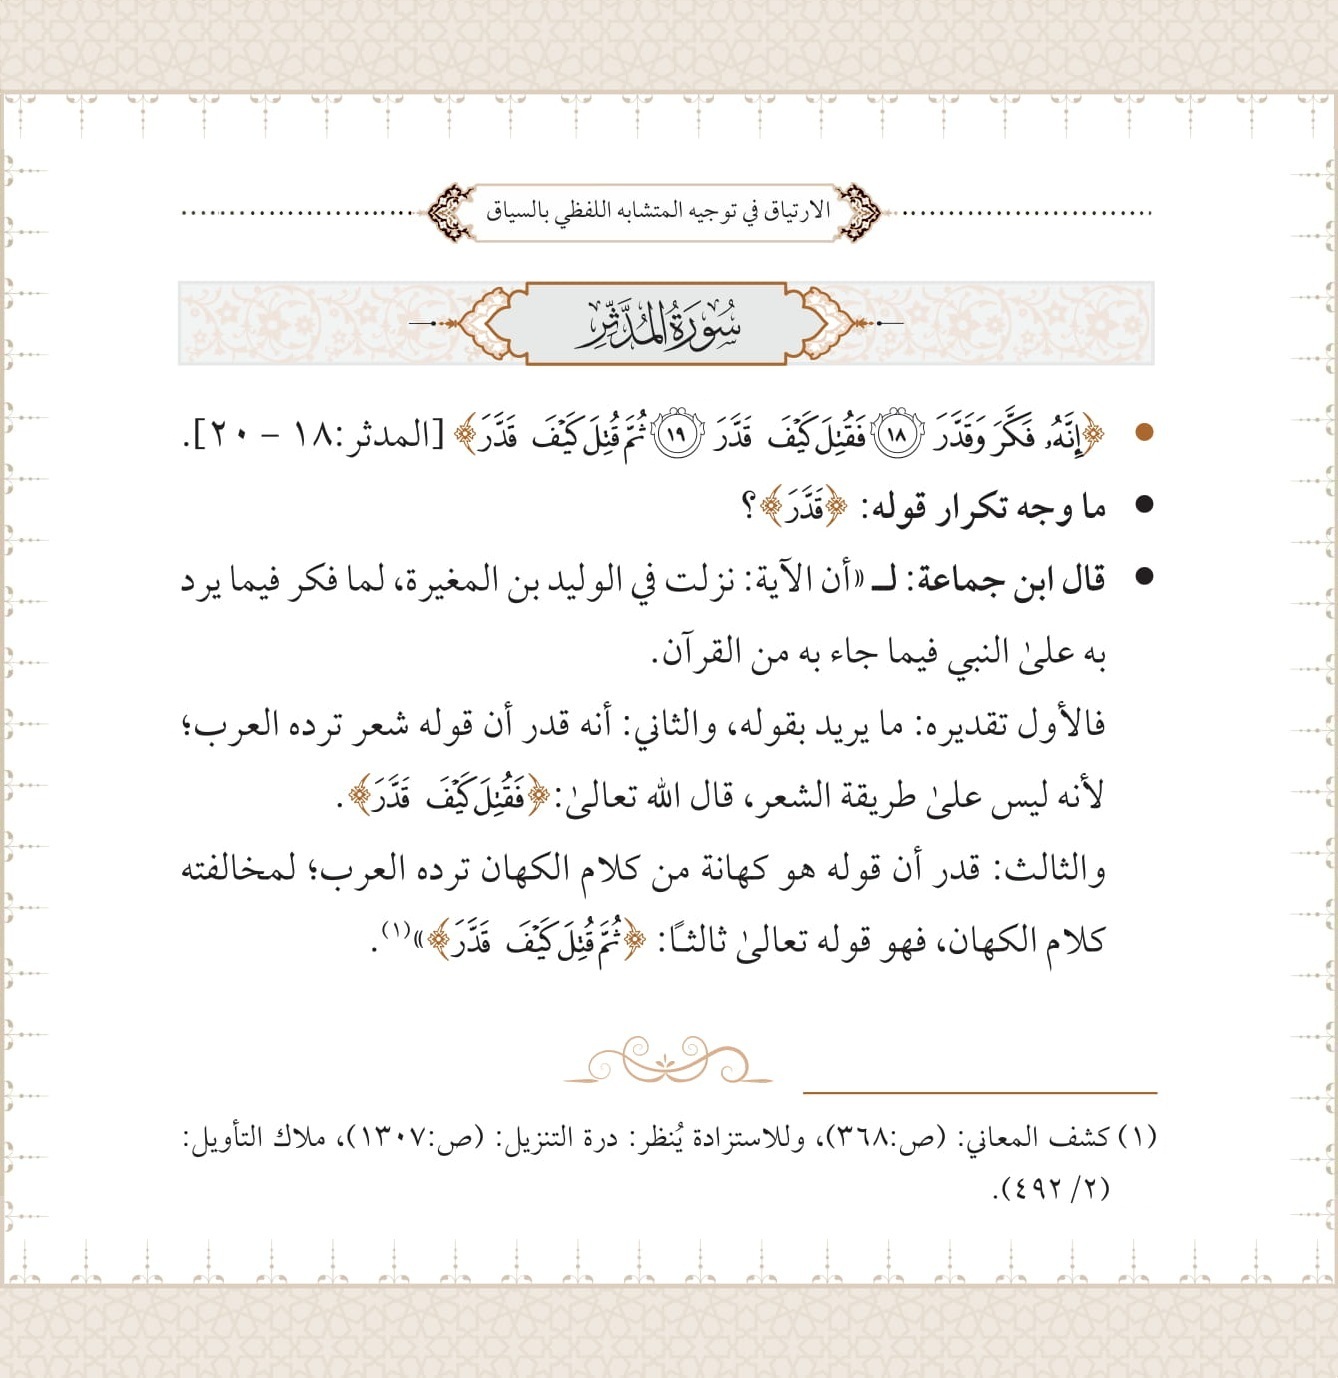 الارتياق في توجيه المتشابه اللفظي بالسياق
سُورَةُ المُدَّثِّرِ
﴿إِنَّهُۥ فَكَّرَ وَقَدَّرَ ١٨ فَقُتِلَ كَيْفَ قَدَّرَ ١٩ ثُمَّ قُتِلَ كَيْفَ قَدَّرَ﴾ [المدثر:١٨ – ٢٠].
ما وجه تكرار قوله: ﴿قَدَّرَ﴾؟
قال ابن جماعة: لـ «أن الآية: نزلت في الوليد بن المغيرة، لما فكر فيما يرد
به علىٰ النبي فيما جاء به من القرآن.
فالأول تقديره: ما يريد بقوله، والثاني: أنه قدر أن قوله شعر ترده العرب؛
لأنه ليس علىٰ طريقة الشعر، قال الله تعالىٰ: ﴿فَقُتِلَ كَيْفَ قَدَّرَ﴾.
والثالث: قدر أن قوله هو كهانة من كلام الكهان ترده العرب؛ لمخالفته
كلام الكهان، فهو قوله تعالىٰ ثالثًا: ﴿ثُمَّ قُتِلَ كَيْفَ قَدَّرَ﴾»(١).
(١) كشف المعاني: (ص:٣٦٨)، وللاستزادة يُنظر: درة التنزيل: (ص:١٣٠٧)، ملاك التأويل:
(٢/ ٤٩٢).